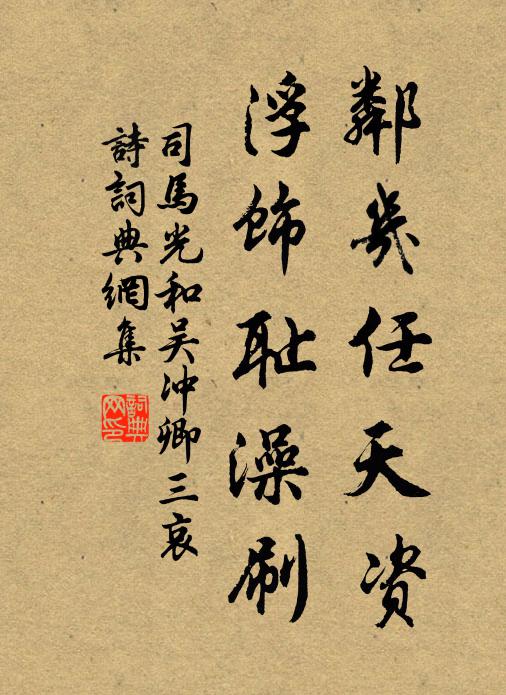 鄰幾任天資
浮飾耻澡刷
司馬光和吴沖卿三哀
詩詞典網集
詞典網印